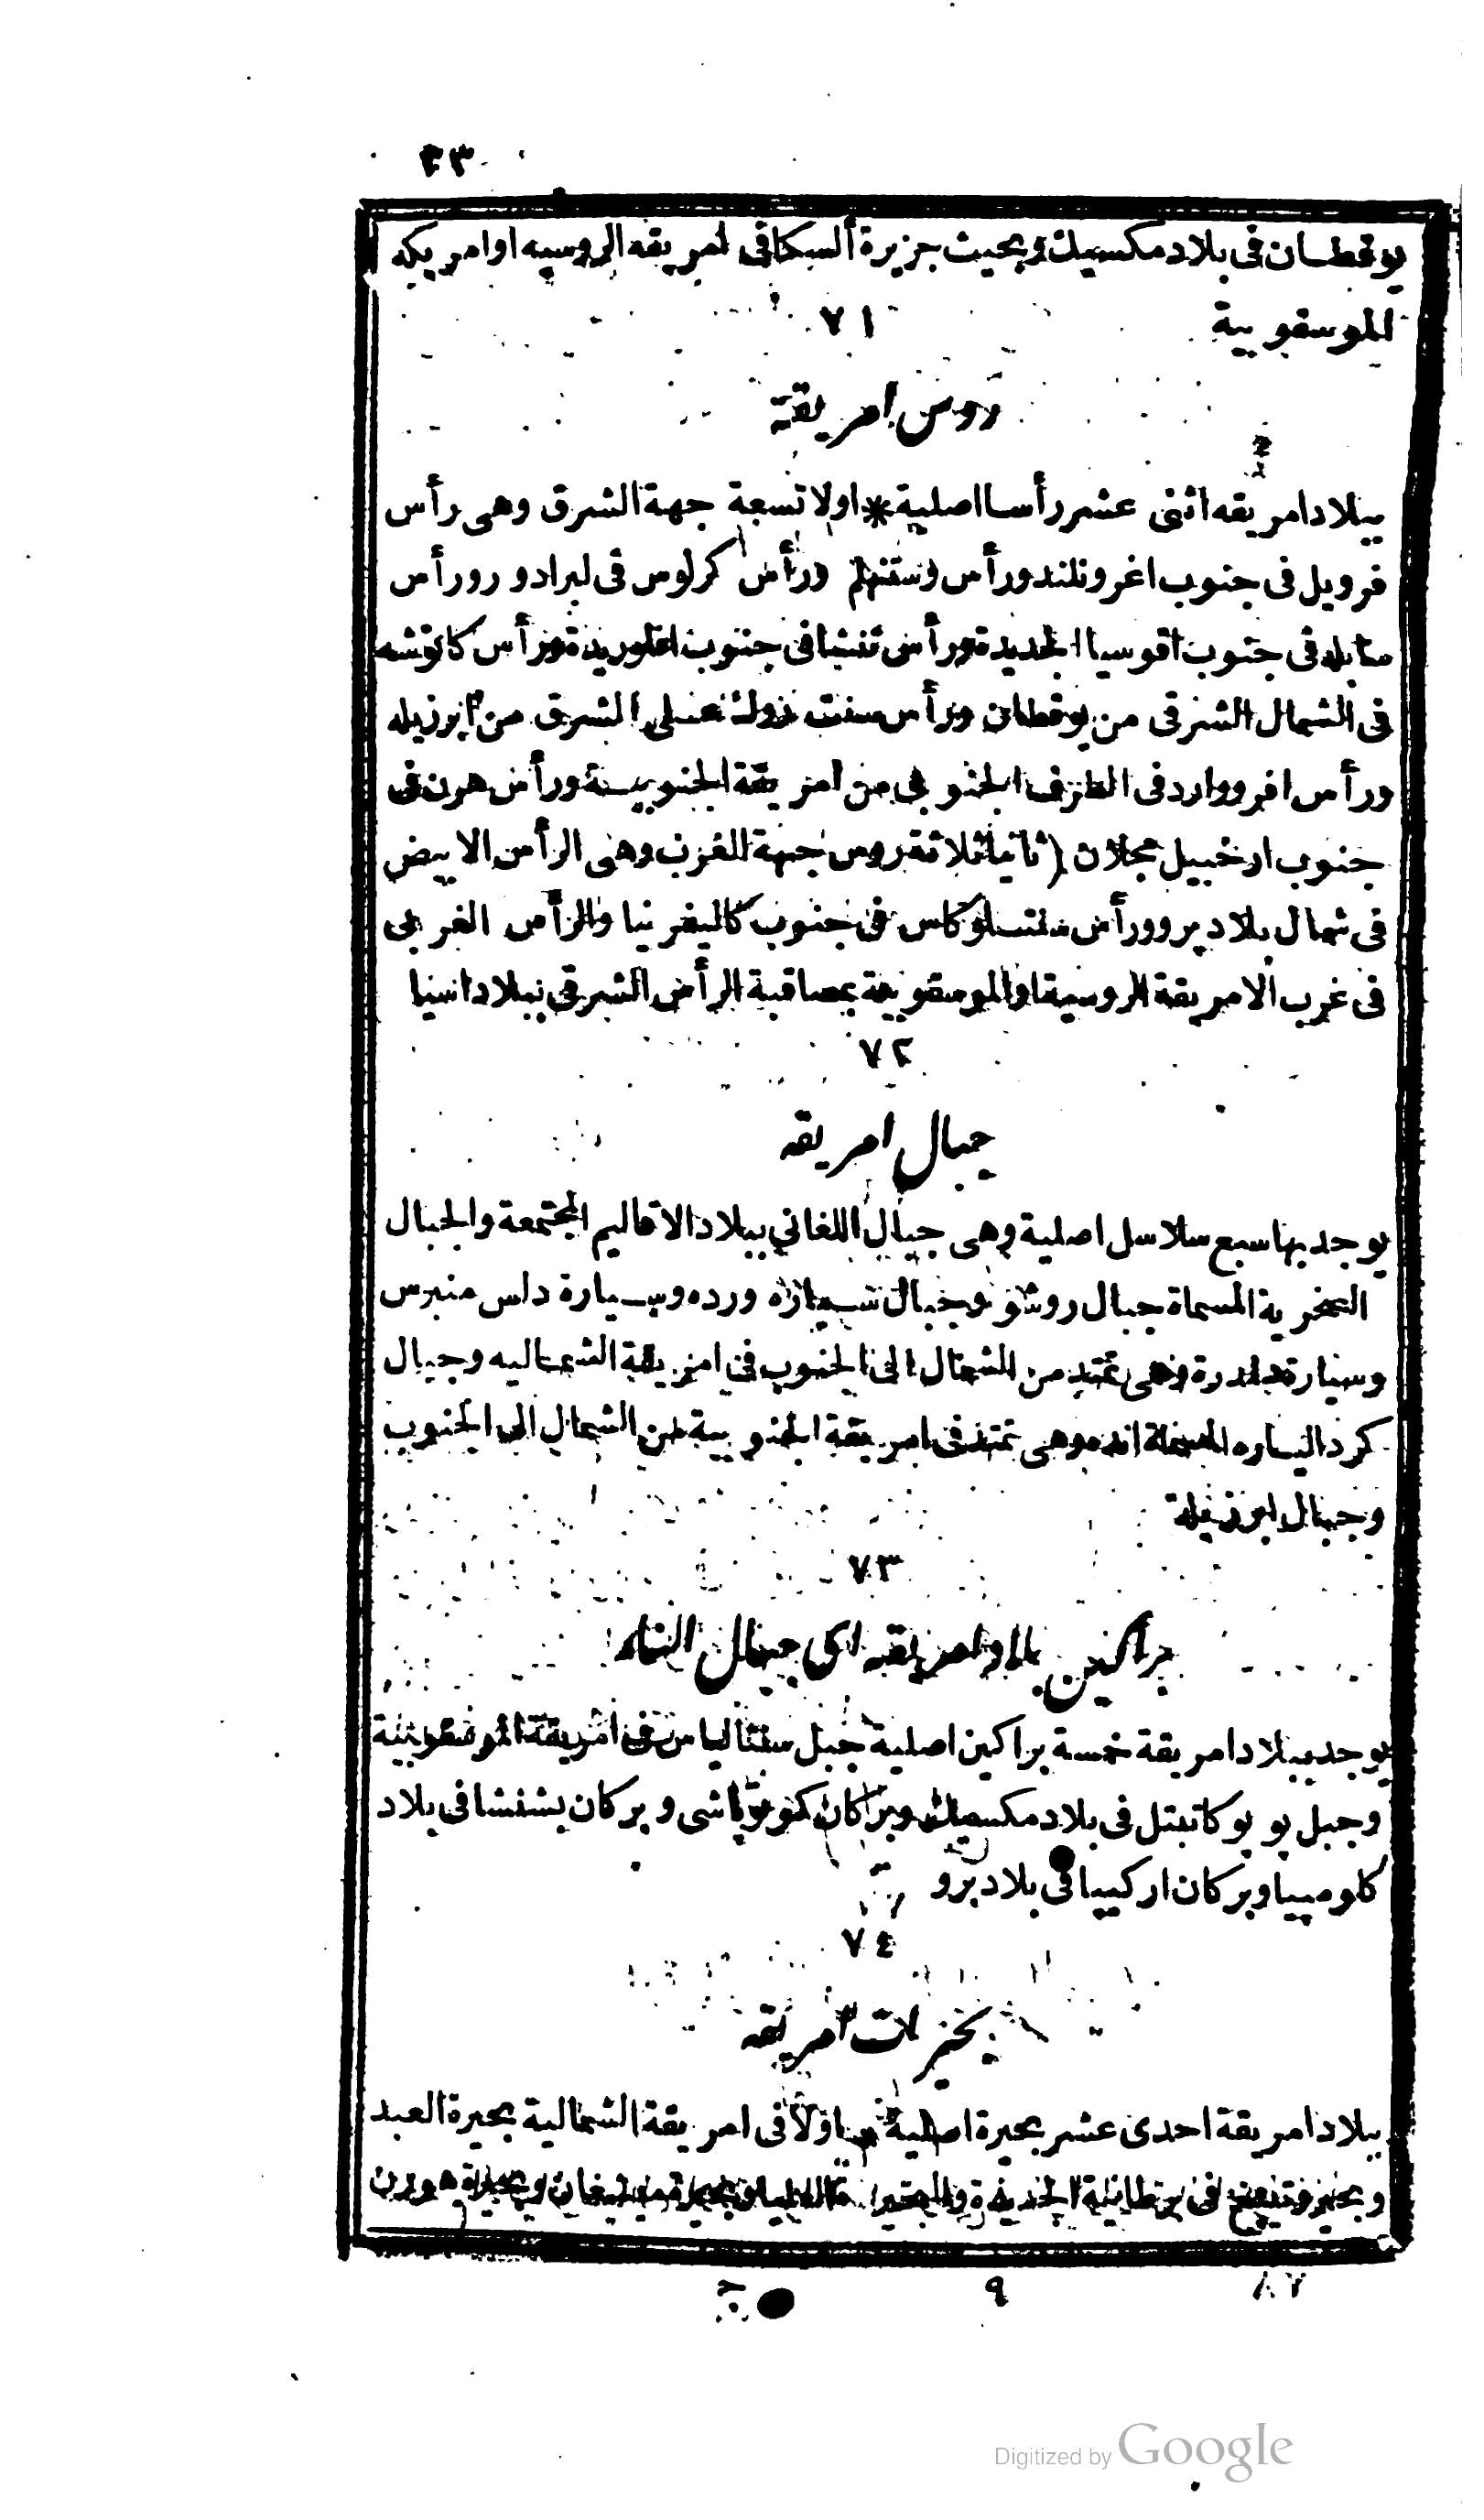 ٢٣
يوقطان فى بلاد مكسيك وبحيث جزيرة ألسكا فى امريقه الروسيه او امريكه
الموسقوبية
٧١
روس امريقة
ببلاد امريقه اثنى عشر رأسا اصلية * اولا تسعة جهة الشرق وهى رأس
فرويل فى جنوب اغرونلند ورأس وستنهلم ورأس كرلوس فى لبرادور ورأس
سابله فى جنوب اقوسيا الجديدة ورأس تنشا فى جنوب افلوريدة ورأس كاتوشه
فى الشمال الشرقى من يوقطان ورأس سنت روك على الشرق من ابرزيله
ورأس افروارد فى الطرف الجنوبى من امريقة الجنوبية ورأس هرن فى
جنوب ارخبيل مجلان (ثانيا ثلاثة روس جهة الغرب وهى الرأس الابيض
فى شمال بلاد پرو ورأس سنتلوكاس فى جنوب كاليفرنيا والرأس الغربى
فى غرب الامريقة الروسية او الموسقوبية بمصاقبة الرأس الشرقى ببلاد اسيا
٧٢
جبال امريقه
يوجد بها سبع سلاسل اصلية وهى جبال اللغانى ببلاد الاقاليم المجتمعة والجبال
الصخرية المسماة جبال روشو وجبال سيارة ورده وسيارة داس منبرس
وسيارة مادرة وهى تمتد من الشمال الى الجنوب فى امريقة الشماليه وجبال
كردالياره المسماة انده وهى تمتد فى امريقة الجنوبية من الشمال الى الجنوب
وجبال ابرزيلة
٧٣
براكين بلاد امريقه اى جبال النار
يوجد ببلاد امريقة خمسة براكين اصلية جبل سنتالياس فى امريقة الموسقوبية
وجبل پوپوكاتبتل فى بلاد مكسيك وبركان كوتوپاشى وبركان پشنشا فى بلاد
كلومبيا وبركان اركيپا فى بلاد پرو
٧٤
بحيرات امريقه
ببلاد امريقة احدى عشر بحيرة اصلية اولا فى امريقة الشمالية بحيرة العبد
وبحيرة فى برطانية الجديدة والبحيرة العليا وبحيرة ميشيغان وبحيرة هورن
٩
Digitized by Google